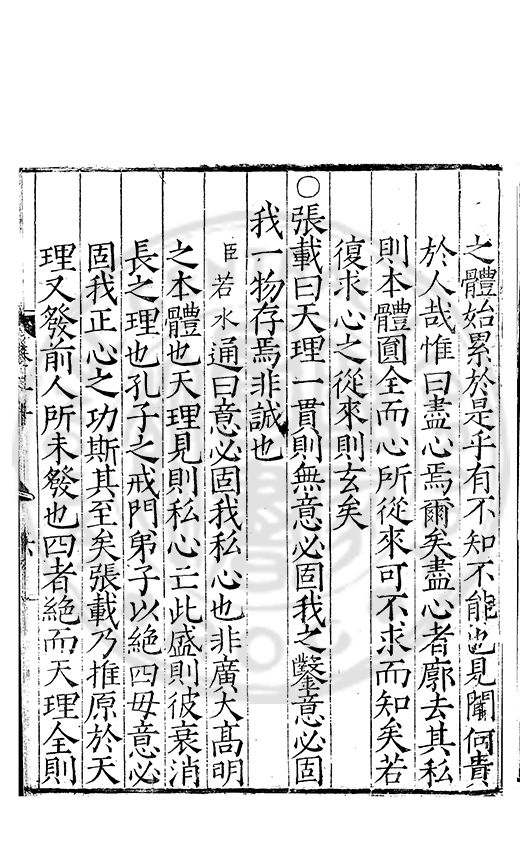 之體始累於是乎有不知不能也見聞何貴
於人哉惟曰盡心焉爾矣盡心者廓去其私
則本體圓全而心所從來可不求而知矣若
復求心之從來則玄矣
○張載曰天理一貫則無意必固我之鑿意必固
我一物存焉非誠也
臣若水通曰意必固我私心也非廣大高明
之本體也天理見則私心亡此盛則彼衰消
長之理也孔子之戒門弟子以絕四毋意必
固我正心之功斯其至矣張載乃推原於天
理又發前人所未發也四者絕而天理全則